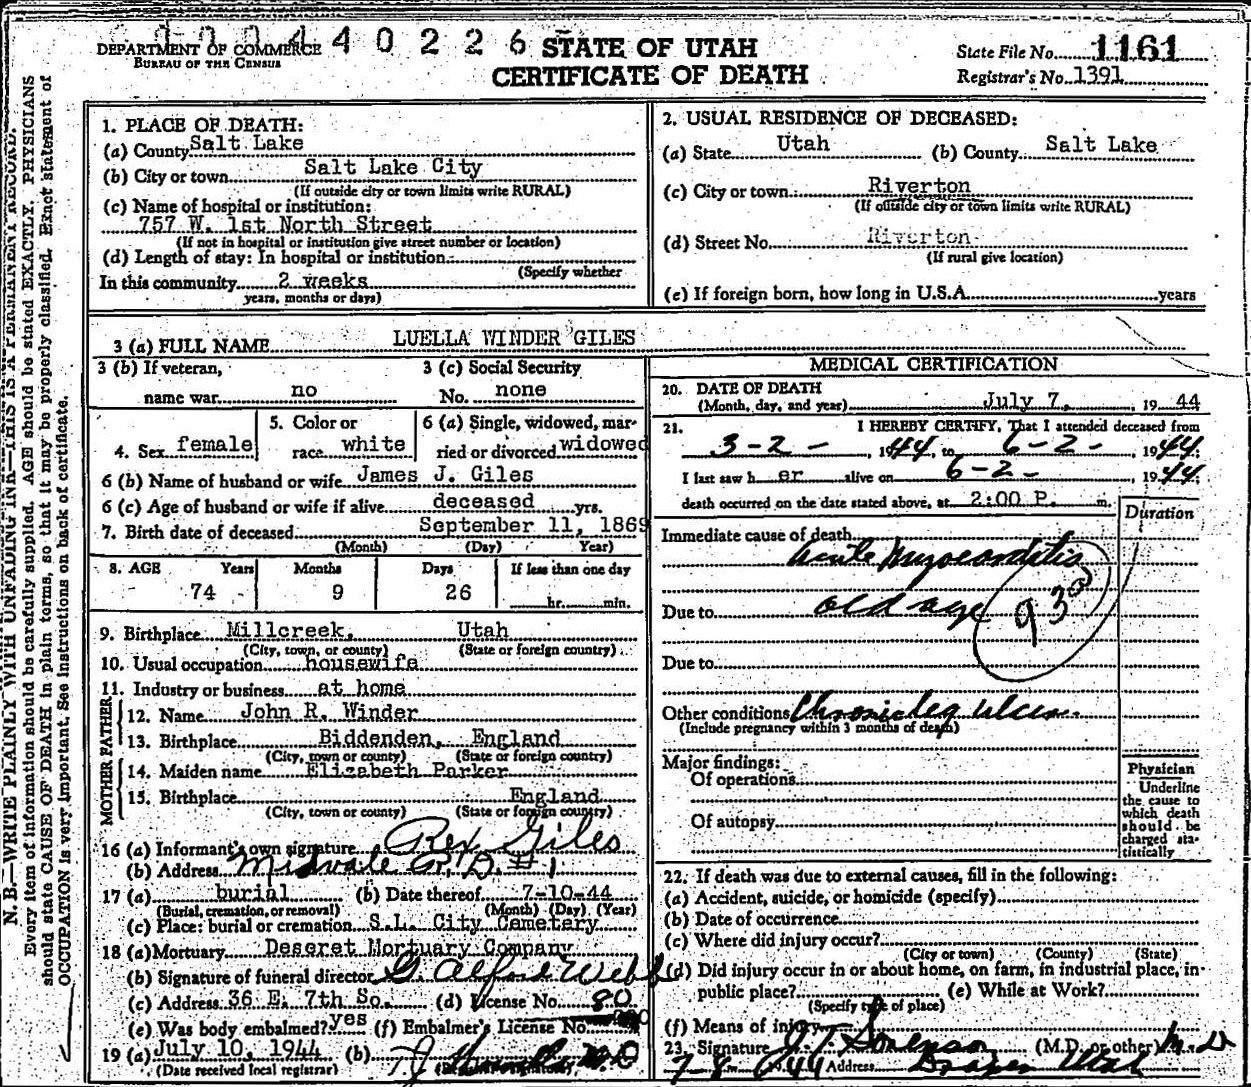 DEPARTMENT OF COMMERCE
BUREAU OF THE CENSUS
440226
STATE OF UTAH
CERTIFICATE OF DEATH
State File No. 1161
Registrar's No. 1391
N. B.—WRITE PLAINLY WITH UNFADING INK—THIS IS A PERMANENT RECORD.
Every item of information should be carefully supplied. AGE should be stated EXACTLY. PHYSICIANS
should state CAUSE OF DEATH in plain terms, so that it may be properly classified. Exact statement of
OCCUPATION is very important. See instructions on back of certificate.
1. PLACE OF DEATH:
(a) County Salt Lake
(b) City or town Salt Lake City
(If outside city or town limits write RURAL)
(c) Name of hospital or institution:
757 W. 1st North Street
(If not in hospital or institution give street number or location)
(d) Length of stay: In hospital or institution
(Specify whether
In this community 2 weeks
years, months or days)
2. USUAL RESIDENCE OF DECEASED:
(a) State Utah (b) County Salt Lake
(c) City or town Riverton
(If outside city or town limits write RURAL)
(d) Street No. Riverton
(If rural give location)
(e) If foreign born, how long in U.S.A. years
3 (a) FULL NAME LUELLA WINDER GILES
3 (b) If veteran,
name war no
3 (c) Social Security
No. none
4. Sex female
5. Color or
race white
6 (a) Single, widowed, mar-
ried or divorced widowed
6 (b) Name of husband or wife James J. Giles
6 (c) Age of husband or wife if alive deceased yrs.
7. Birth date of deceased September 11, 1869
(Month) (Day) Year)
8. AGE Years Months Days If less than one day
74 9 26 hr. min.
9. Birthplace Millcreek, Utah
(City, town, or county) (State or foreign country)
10. Usual occupation housewife
11. Industry or business at home
FATHER
12. Name John R. Winder
13. Birthplace Biddenden, England
(City, town or county) (State or foreign country)
MOTHER
14. Maiden name Elizabeth Parker
15. Birthplace England
(City, town, or county) (State or foreign country)
16 (a) Informant's own signature Rex Giles
(b) Address Midvale R. D. #1
17 (a) burial (b) Date thereof 7-10-44
(Burial, cremation, or removal) (Month) (Day) (Year)
(c) Place: burial or cremation S.L. City Cemetery
18 (a) Mortuary Deseret Mortuary Company
(b) Signature of funeral director G. Alford Webb
(c) Address 36 E. 7th So. (d) License No. 80
(e) Was body embalmed? yes (f) Embalmer's License No.
19 (a) July 10, 1944 (b)
(Date received local registrar)
MEDICAL CERTIFICATION
20. DATE OF DEATH
(Month, day, and year) July 7, 1944
21. I HEREBY CERTIFY, That I attended deceased from
3-2-, 1944, to 6-2-, 1944;
I last saw her alive on 6-2- 1944
death occurred on the date stated above, at 2:00 P. m.
Duration
Immediate cause of death
Acute Myocarditis
Due to old age
Due to
Other conditions Chronic leg ulcer
(Include pregnancy within 3 months of death)
Major findings:
Of operations
Of autopsy
Physician
Underline
the cause to
which death
should be
charged sta-
tistically
22. If death was due to external causes, fill in the following:
(a) Accident, suicide, or homicide (specify)
(b) Date of occurrence
(c) Where did injury occur?
(City or town) (County) (State)
(d) Did injury occur in or about home, on farm, in industrial place, in
public place? (e) While at Work?
(Specify type of place)
(f) Means of injury
23. Signature J. T. Sorenson (M.D. or other) M.D
7-8- 1944 Address Draper Utah